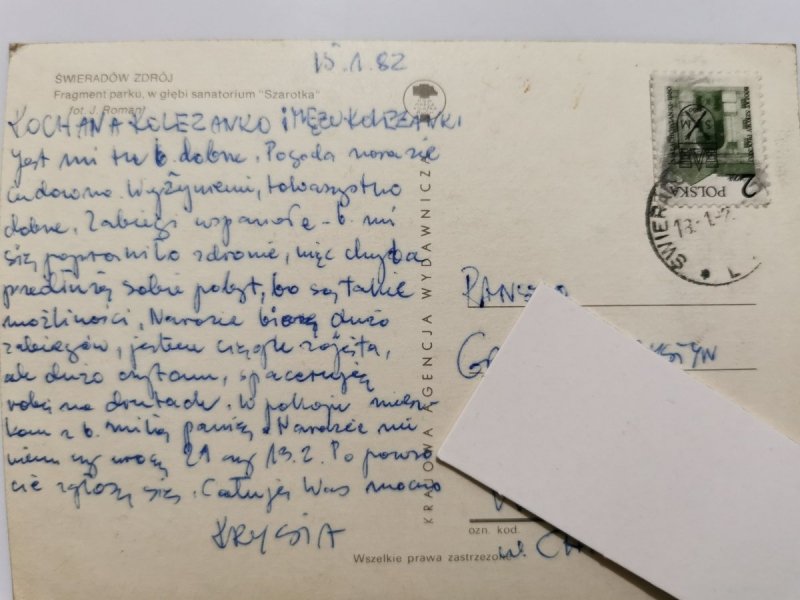 15.1.82
ŚWIERADÓW ZDRÓJ
Fragment parku, w głębi sanatorium "Szarotka"
fot. J. Roman
KOCHANA KOLEŻANKO i MĘŻU KOLEŻANKI
Jest mi tu b. dobrze. Pogoda na razie
cudowna. Wyżywienie, towarzystwo
dobre. Zabiegi wspaniałe - b. mi
się poprawiło zdrowie, więc chyba
przedłużę sobie pobyt, bo są takie
możliwości. Na razie biorę dużo
zabiegów, jestem ciągle zajęta,
ale dużo czytam, spaceruję
robię na drutach. W pokoju miesz-
kam z b. miłą panią. Na razie nie
wiem czy wrócę 21 czy 13.2. Po powro
cie zgłoszę się. Całuję Was mocno
KRYSIA
KRAJOWA AGENCJA WYDAWNICZA
POLSKA
2
ŚWIERAD
18.-1.-
L
ozn. kod.
w.
Wszelkie prawa zastrzeżone